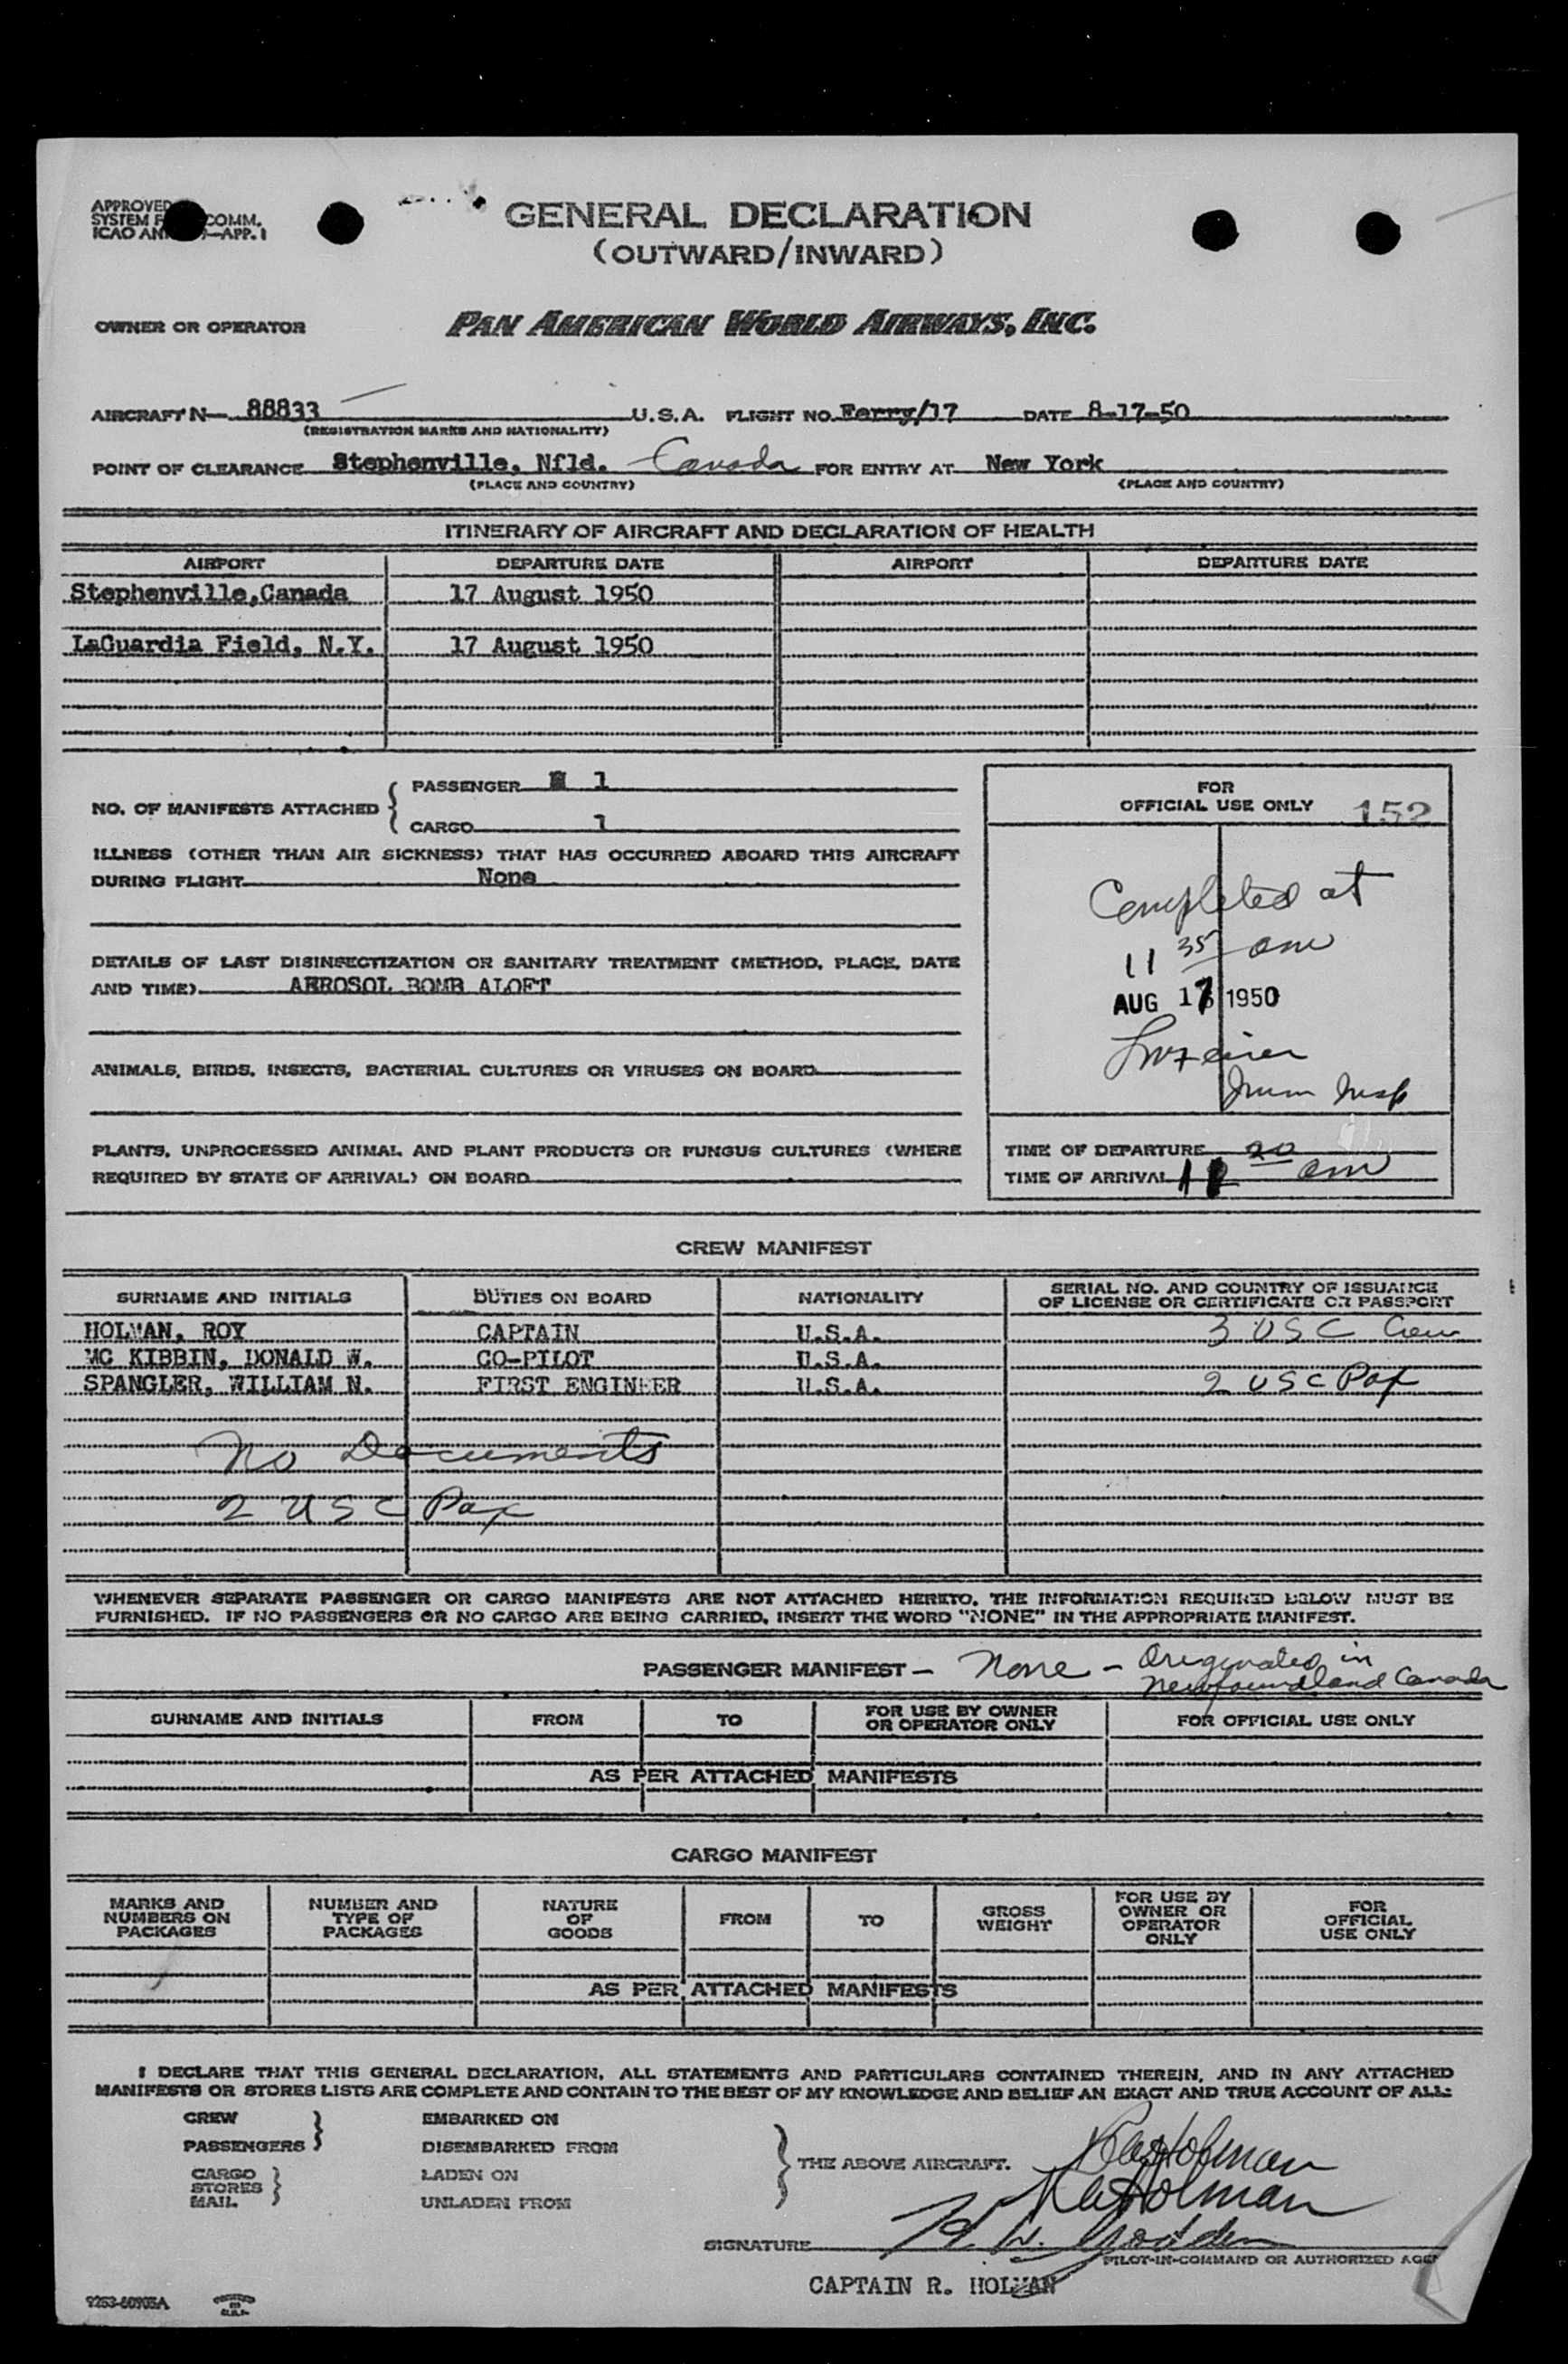 APPROVED COMM.
SYSTEM
ICAO —APP. 1
GENERAL DECLARATION
(OUTWARD/INWARD)
OWNER OR OPERATOR PAN AMERICAN WORLD AIRWAYS, INC.
AIRCRAFT N— 88833 U.S.A. FLIGHT NO. Ferry/17 DATE 8-17-50
(REGISTRATION MARKS AND NATIONALITY)
POINT OF CLEARANCE Stephenville, Nfld. Canada FOR ENTRY AT New York
(PLACE AND COUNTRY) (PLACE AND COUNTRY)
ITINERARY OF AIRCRAFT AND DECLARATION OF HEALTH
AIRPORT DEPARTURE DATE AIRPORT DEPARTURE DATE
Stephenville,Canada 17 August 1950
LaGuardia Field, N.Y. 17 August 1950
NO. OF MANIFESTS ATTACHED
PASSENGER 1
CARGO 1
ILLNESS (OTHER THAN AIR SICKNESS) THAT HAS OCCURRED ABOARD THIS AIRCRAFT
DURING FLIGHT None
DETAILS OF LAST DISINSECTIZATION OR SANITARY TREATMENT (METHOD, PLACE, DATE
AND TIME) AEROSOL BOMB ALOFT
ANIMALS, BIRDS, INSECTS, BACTERIAL CULTURES OR VIRUSES ON BOARD
PLANTS, UNPROCESSED ANIMAL AND PLANT PRODUCTS OR FUNGUS CULTURES (WHERE
REQUIRED BY STATE OF ARRIVAL) ON BOARD
FOR
OFFICIAL USE ONLY 152
Completed at
11 35 am
AUG 17 1950
Imm Insp
TIME OF DEPARTURE 20
TIME OF ARRIVAL 11 am
CREW MANIFEST
SURNAME AND INITIALS DUTIES ON BOARD NATIONALITY SERIAL NO. AND COUNTRY OF ISSUANCE
OF LICENSE OR CERTIFICATE OR PASSPORT
HOLMAN, ROY CAPTAIN U.S.A. 3 USC Crew
MC KIBBIN, DONALD W. CO-PILOT U.S.A.
SPANGLER, WILLIAM N. FIRST ENGINEER U.S.A. 2 USC Pax
No Documents
2 USC Pax
WHENEVER SEPARATE PASSENGER OR CARGO MANIFESTS ARE NOT ATTACHED HERETO, THE INFORMATION REQUIRED BELOW MUST BE
FURNISHED. IF NO PASSENGERS OR NO CARGO ARE BEING CARRIED, INSERT THE WORD "NONE" IN THE APPROPRIATE MANIFEST.
PASSENGER MANIFEST — None — Originated in
Newfoundland Canada
SURNAME AND INITIALS FROM TO FOR USE BY OWNER
OR OPERATOR ONLY FOR OFFICIAL USE ONLY
AS PER ATTACHED MANIFESTS
CARGO MANIFEST
MARKS AND
NUMBERS ON
PACKAGES
NUMBER AND
TYPE OF
PACKAGES
NATURE
OF
GOODS
FROM
TO
GROSS
WEIGHT
FOR USE BY
OWNER OR
OPERATOR
ONLY
FOR
OFFICIAL
USE ONLY
AS PER ATTACHED MANIFESTS
I DECLARE THAT THIS GENERAL DECLARATION, ALL STATEMENTS AND PARTICULARS CONTAINED THEREIN, AND IN ANY ATTACHED
MANIFESTS OR STORES LISTS ARE COMPLETE AND CONTAIN TO THE BEST OF MY KNOWLEDGE AND BELIEF AN EXACT AND TRUE ACCOUNT OF ALL:
CREW EMBARKED ON
PASSENGERS DISEMBARKED FROM
CARGO LADEN ON
STORES
MAIL UNLADEN FROM
THE ABOVE AIRCRAFT.
Roy Holman
Roy Holman
SIGNATURE H. W. Godden
PILOT-IN-COMMAND OR AUTHORIZED AGE
CAPTAIN R. HOLMAN